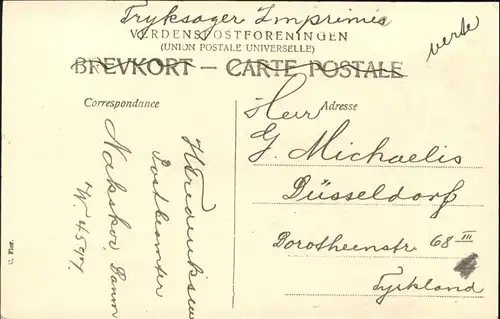 Tryksager Imprimés
VERDENSPOSTFORENINGEN
(UNION POSTALE UNIVERSELLE)
BREVKORT — CARTE POSTALE
Correspondance
Adresse
Herr
G. Michaelis
Düsseldorf
Dorotheenstr 68 III
Tyskland
Postbeamter
Nakskov, Danm